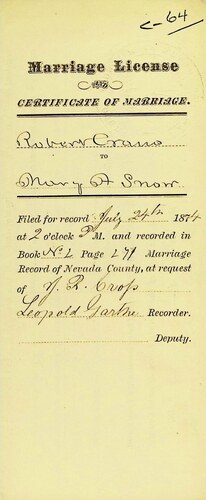 C-64
Marriage License
AND
CERTIFICATE OF MARRIAGE.
Robert Craus
TO
Mary A Snow
Filed for record July 24th 1874
at 2 o'clock P M. and recorded in
Book No 1 Page 171 Marriage
Record of Nevada County, at request
of Y. R. Cross
Leopold Garthe Recorder.
Deputy.